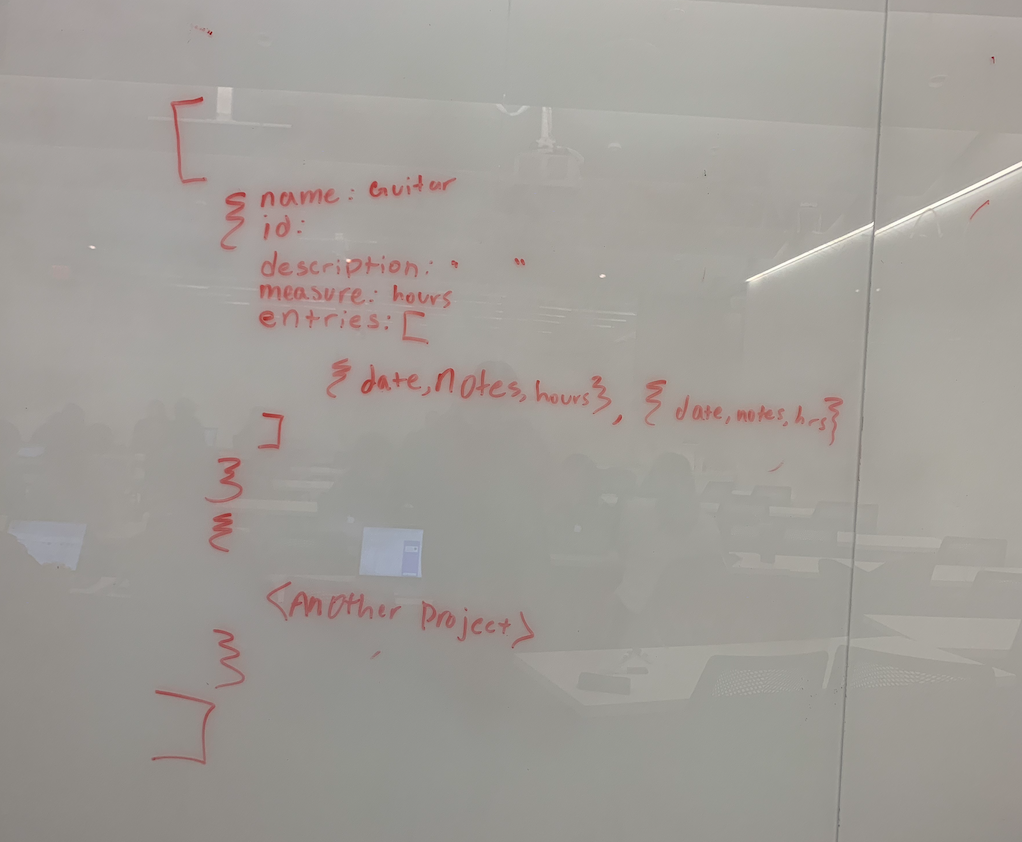 [
{ name: Guitar
id:
description: " "
measure: hours
entries: [
{ date, notes, hours}, { date, notes, hrs}
]
}
{
<Another project>
}
]